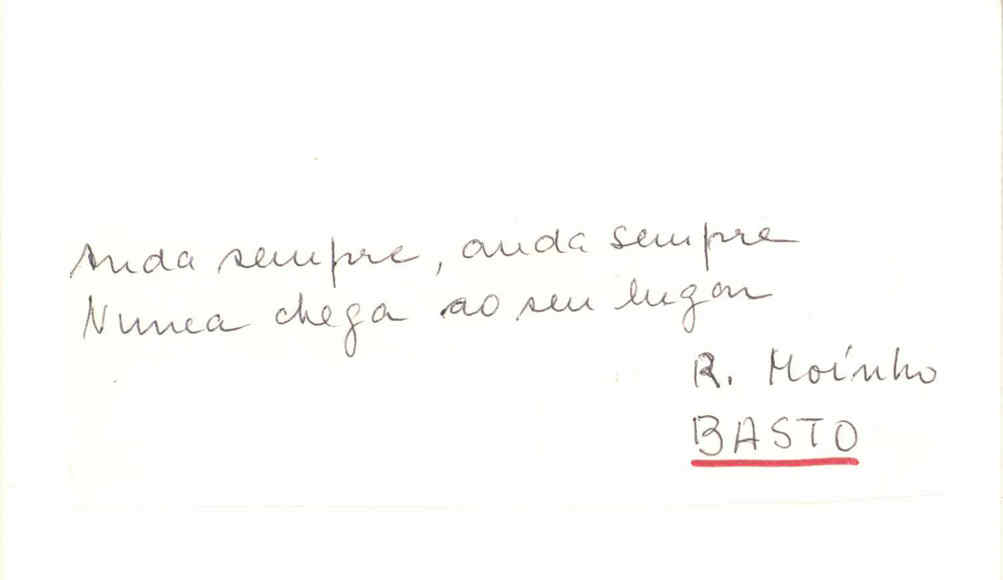 Anda sempre, anda sempre
Nunca chega ao seu lugar
R. Moínho
BASTO